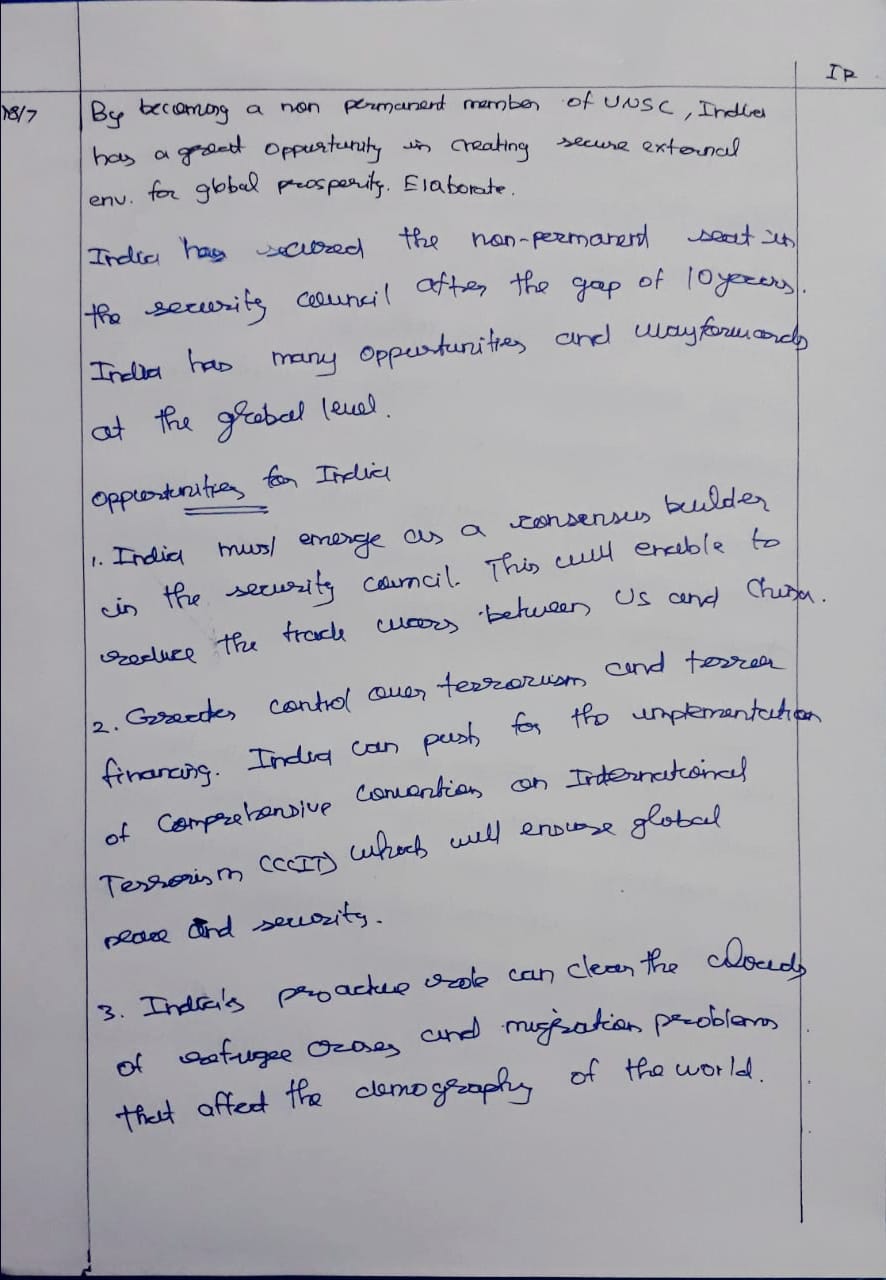 IR
18/7
By becoming a non permanent member of UNSC, India
has a great oppurtunity in creating secure external
env. for global prosperity. Elaborate.
India has secured the non-permanent seat in
the security council after the gap of 10 years.
India has many oppurtunities and wayforwards
at the global level.
oppurtunities for India
1. India must emerge as a consensus builder
in the security council. This will enable to
reduce the trade wars between US and China.
2. Greater control over terrorism and terror
financing. India can push for the implementation
of Comprehensive Convention on International
Terrorism (CCIT) which will ensure global
peace and security.
3. India's proactive role can clear the clouds
of refugee crises and migration problems
that affect the demography of the world.